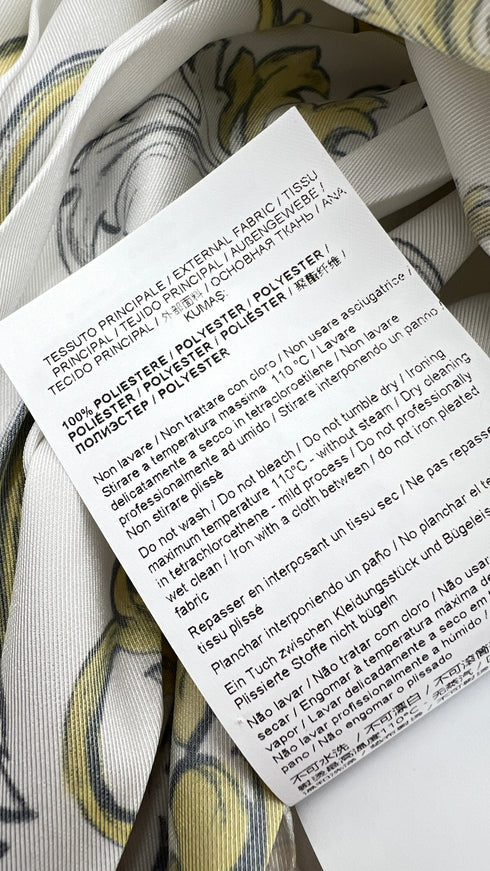 TESSUTO PRINCIPALE / EXTERNAL FABRIC / TISSU
PRINCIPAL / TEJIDO PRINCIPAL / AUßENGEWEBE /
TECIDO PRINCIPAL / 外部面料 / ОСНОВНАЯ ТКАНЬ / ANA
KUMAŞ:
100% POLIESTERE / POLYESTER / POLYESTER /
POLIÉSTER / POLYESTER / POLIÉSTER / 聚酯纤维 /
ПОЛИЭСТЕР / POLYESTER
Non lavare / Non trattare con cloro / Non usare asciugatrice /
Stirare a temperatura massima 110°C / Lavare
delicatamente a secco in tetracloroetilene / Non lavare
professionalmente ad umido / Stirare interponendo un panno /
Non stirare plissè
Do not wash / Do not bleach / Do not tumble dry / Ironing
maximum temperature 110°C - without steam / Dry cleaning
in tetrachloroethene - mild process / Do not professionally
wet clean / Iron with a cloth between / do not iron pleated
fabric
Repasser en interposant un tissu sec / Ne pas repasser
tissu plissé
Planchar interponiendo un paño / No planchar el
Ein Tuch zwischen Kleidungsstück und
Plissierte Stoffe nicht bügeln
Não lavar / Não tratar com cloro / Não usar
secar / Engomar à temperatura máxima de
vapor / Lavar delicadamente a seco em
Não lavar profissionalmente a húmido /
pano / Não engomar o plissado
不可水洗 / 不可漂白 / 不可滚